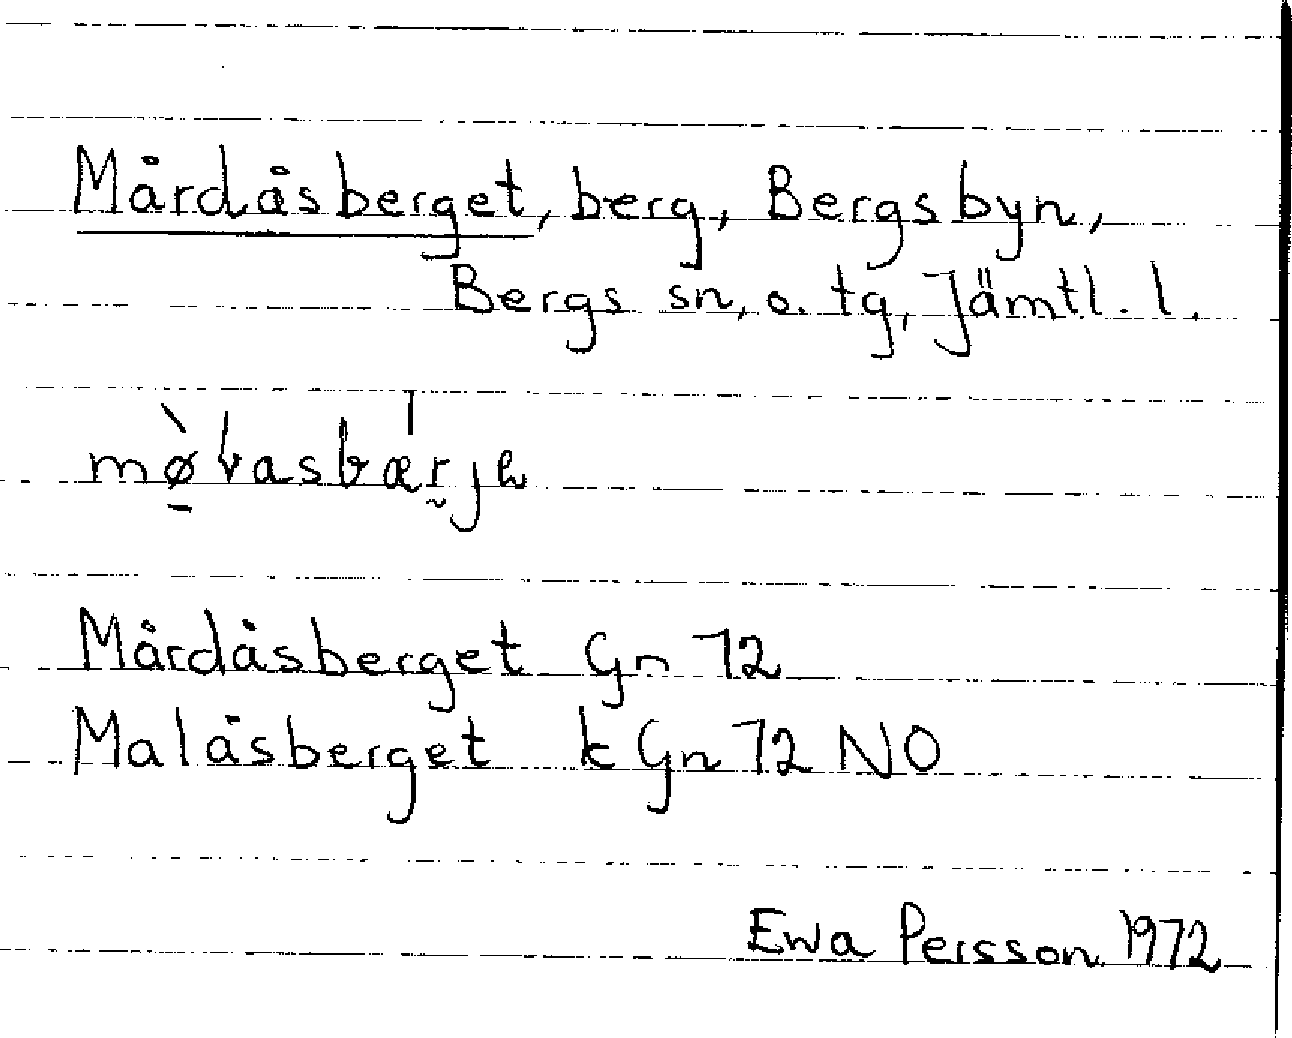 Mårdåsberget, berg, Bergsbyn,
Bergs sn, o. tg, Jämtl. l.
Mårdåsberget Gn 72
Malåsberget k Gn 72 NO
Ewa Persson 1972